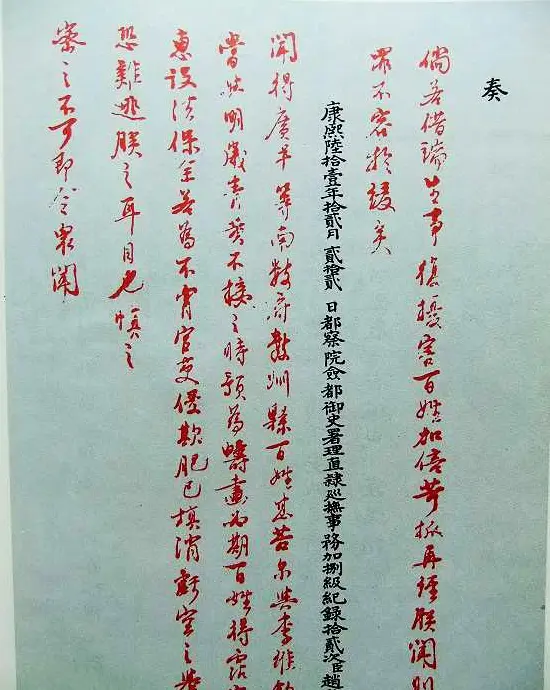 奏
倘若借端生事復擾害百姓加倍苛派再經朕聞則
罪不容於誅矣
康熙陸拾壹年拾貳月貳拾貳日都察院僉都御史署理直隸巡撫事務加捌級紀錄拾貳次臣趙
聞得廣平等南數府數州縣百姓甚苦爾與李維鈞
當此明歲青黃不接之時預為疇畫必期百姓得霑實
惠設法保全若為不肖官吏侵欺肥己填消虧空之
恐難逃朕之耳目也慎之
密之不可即令泉聞